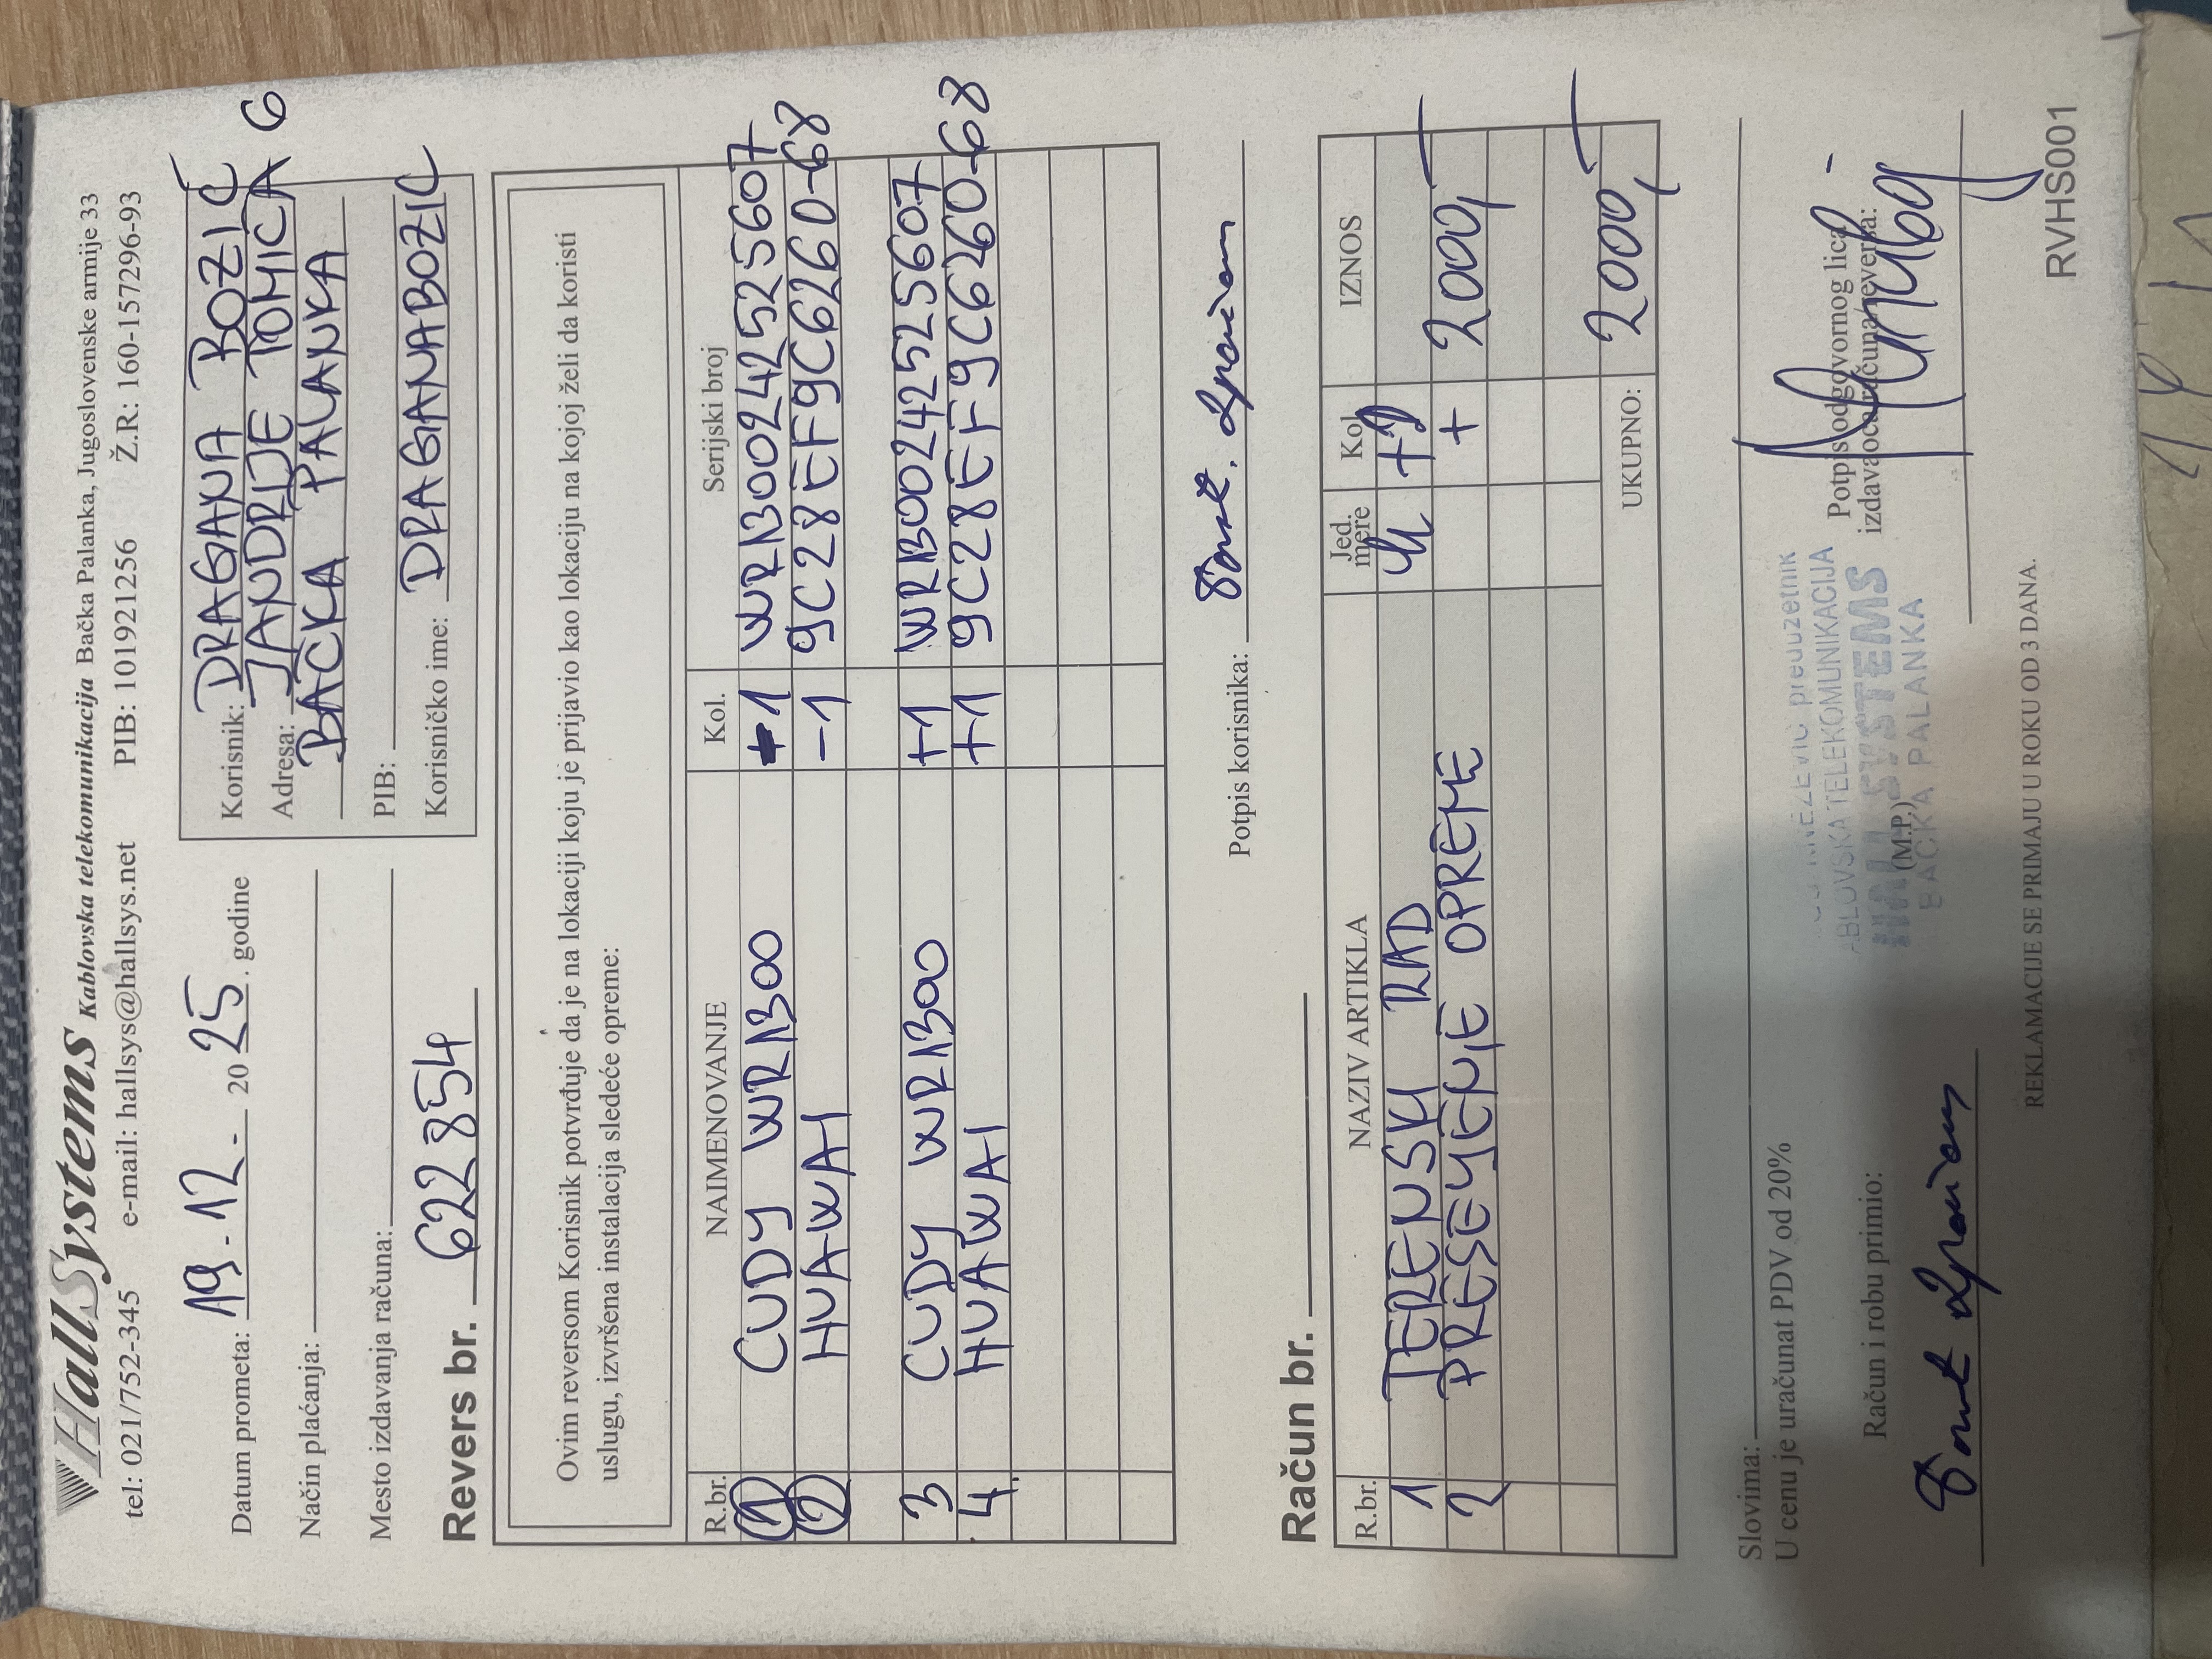 HallSystems Kablovska telekomunikacija Bačka Palanka, Jugoslovenske armije 33
tel: 021/752-345 e-mail: hallsys@hallsys.net PIB: 101921256 Ž.R: 160-157296-93
Datum prometa: 19.12. 2025. godine
Način plaćanja:
Mesto izdavanja računa:
Korisnik: DRAGANA BOZIĆ
Adresa: JANDRIJE TOMIĆA 6
BAČKA PALANKA
PIB:
Korisničko ime: DRAGANABOZIC
Revers br. 622854
Ovim reversom Korisnik potvrđuje da je na lokaciji koju je prijavio kao lokaciju na kojoj želi da koristi
uslugu, izvršena instalacija sledeće opreme:
R.br. NAIMENOVANJE Kol. Serijski broj
1 CUDY WR1300 -1 WR13002425525607
2 HUAWAI -1 9C28EF9C6260-68
3 CUDY WR1300 +1 WR13002425525607
4. HUAWAI +1 9C28EF9C6260-68
Potpis korisnika:
Račun br.
R.br. NAZIV ARTIKLA Jed. mere Kol. IZNOS
1 TERENSKI RAD
2 PRESEYENJE OPREME + 2000,-
UKUPNO: 2000,-
Slovima:
U cenu je uračunat PDV od 20%
Račun i robu primio:
preduzetnik
KABLOVSKA TELEKOMUNIKACIJA
HALL SYSTEMS
BAČKA PALANKA
(M.P.)
Potpis odgovornog lica
izdavaoca računa/reversa:
REKLAMACIJE SE PRIMAJU U ROKU OD 3 DANA.
RVHS001